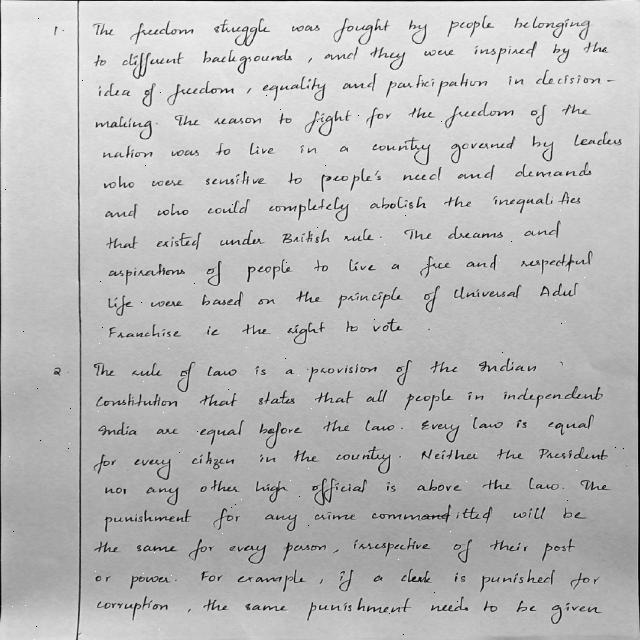 1. The freedom struggle was fought by people belonging
to different backgrounds, and they were inspired by the
idea of freedom, equality and participation in decision-
making. The reason to fight for the freedom of the
nation was to live in a country governed by leaders
who were sensitive to people's need and demands
and who could completely abolish the inequalities
that existed under British rule. The dreams and
aspirations of people to live a free and respectful
life were based on the principle of Universal Adul
Franchise ie the right to vote.
2 The rule of law is a provision of the Indian
Constitution that states that all people in independent
India are equal before the law. Every law is equal
for every citizen in the country. Neither the President
nor any other high official is above the law. The
punishment for any crime committed will be
the same for every person, irrespective of their post
or power. For example, if a clerk is punished for
corruption, the same punishment needs to be given